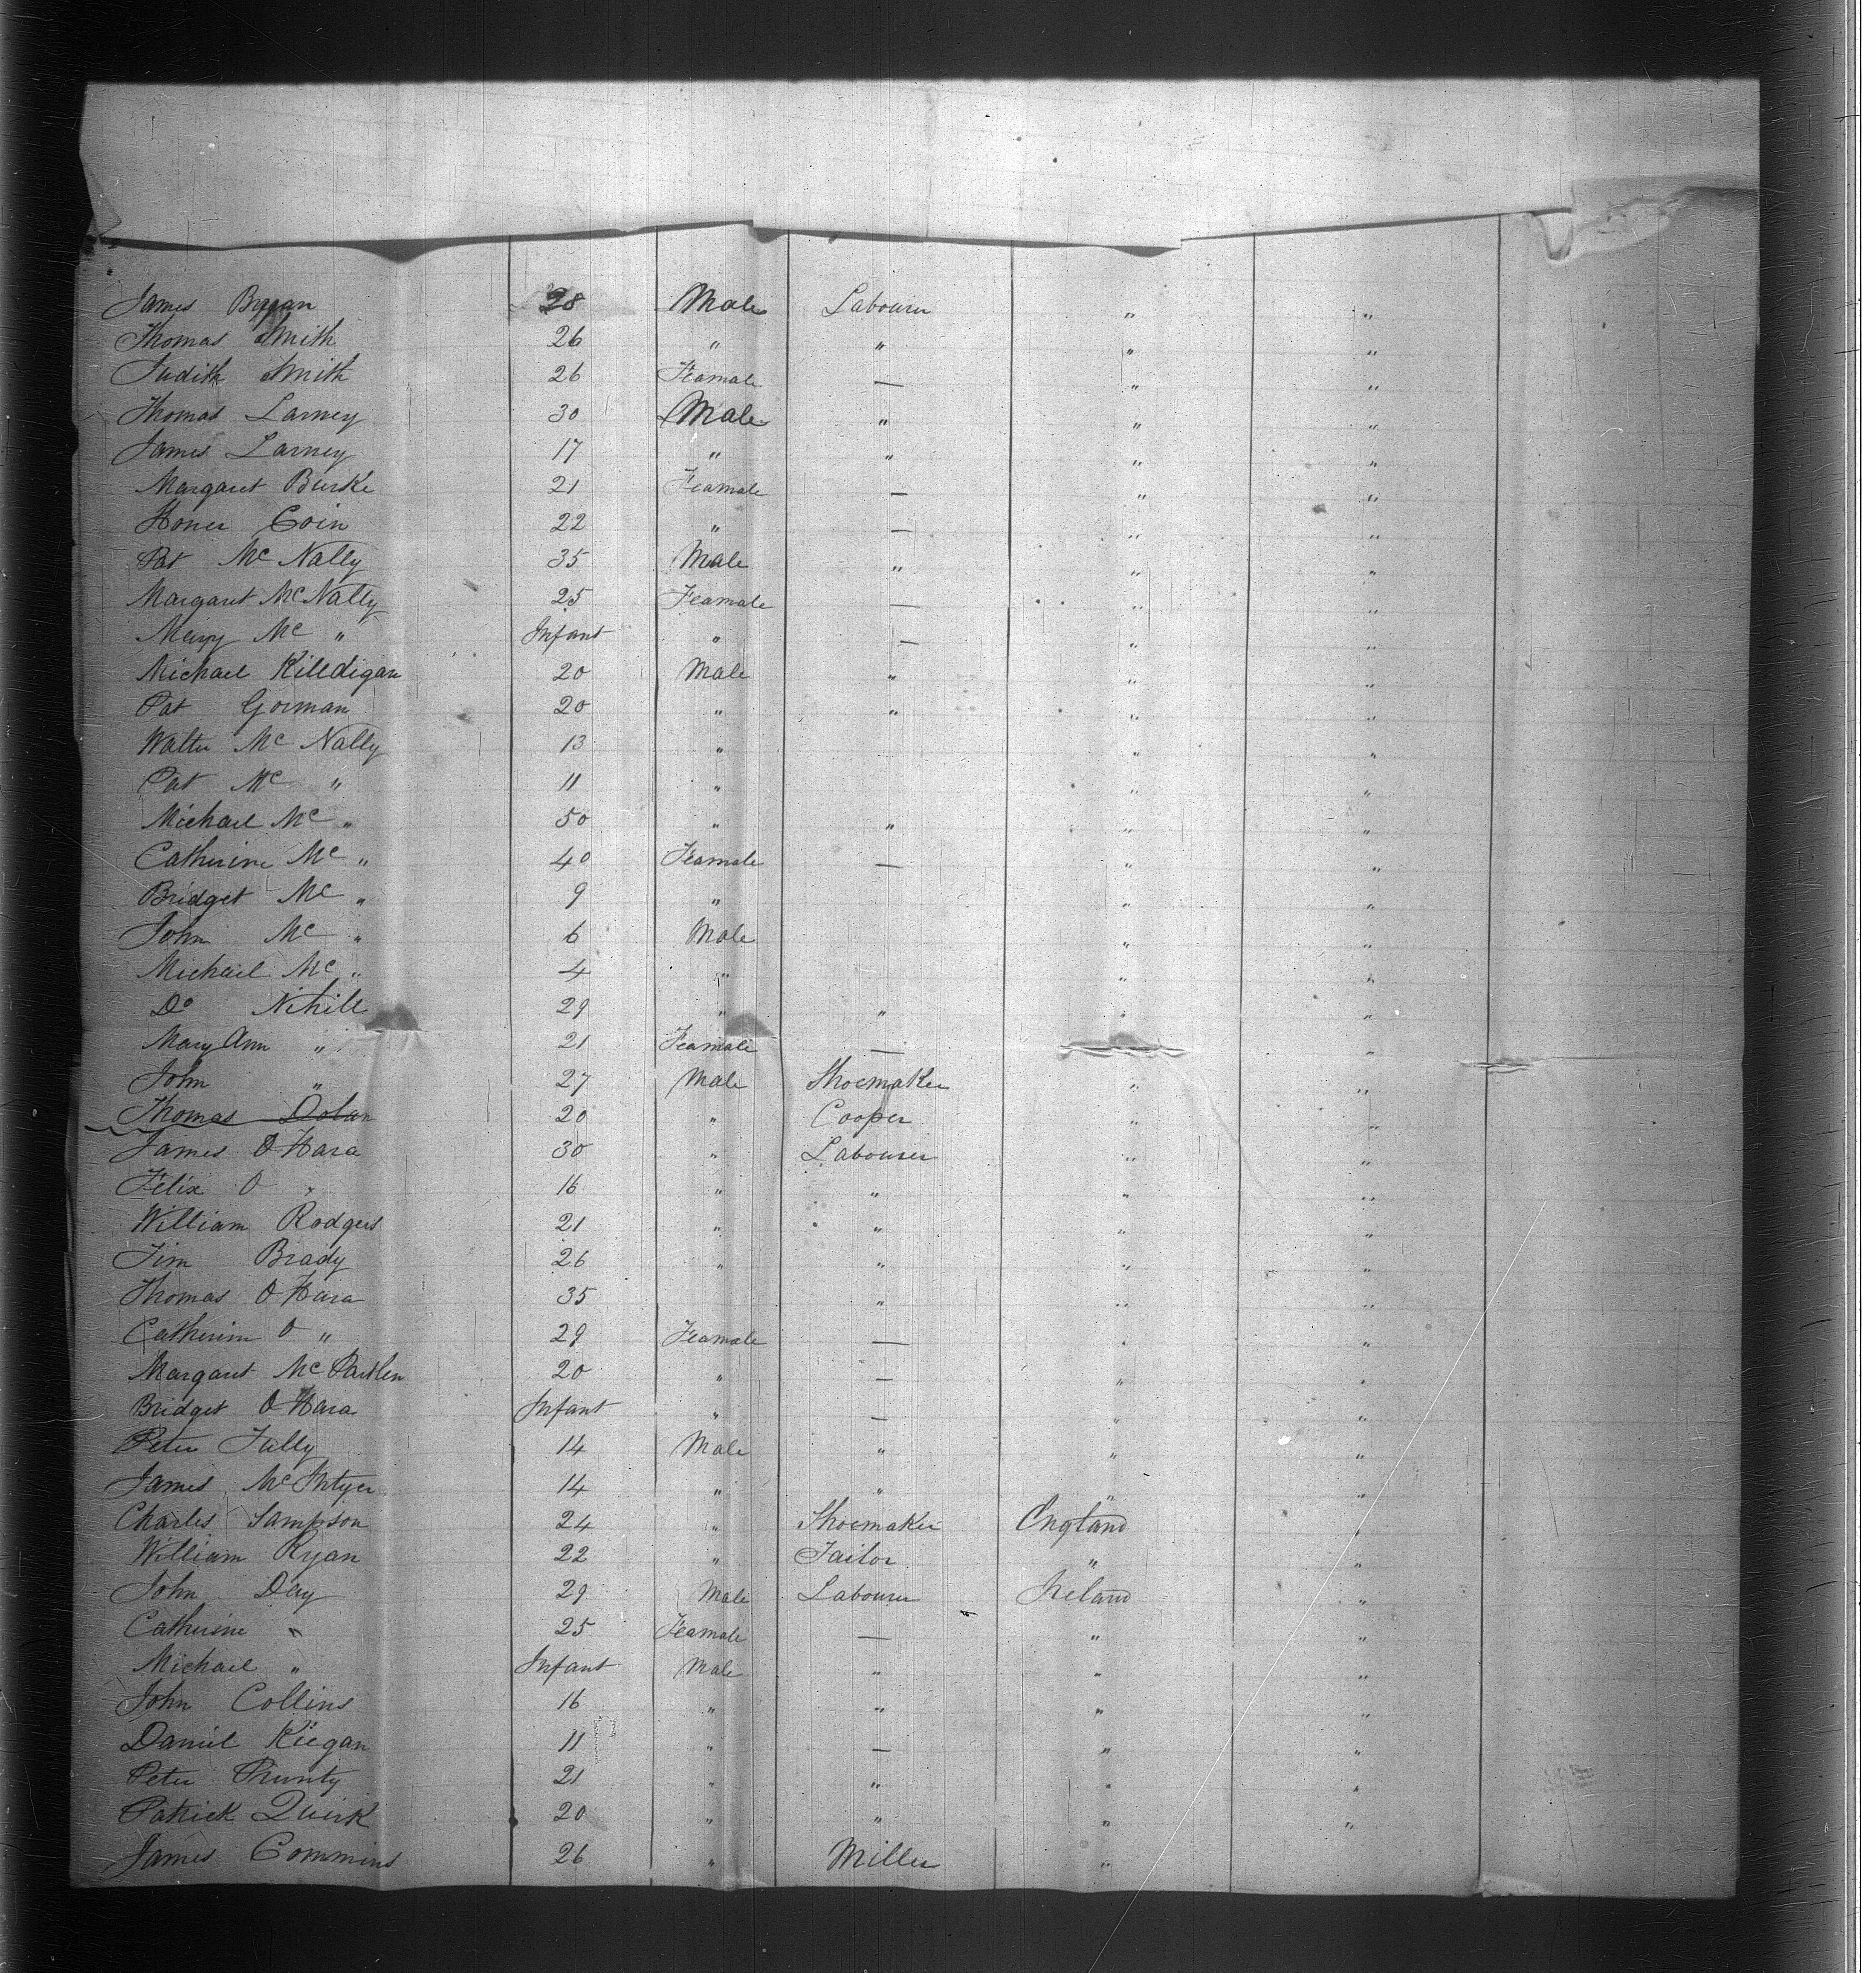 James Bryan 28 Male Labourer " "
Thomas Smith 26 " " " "
Judith Smith 26 Feamale — " "
Thomas Larney 30 Male " " "
James Larney 17 " " " "
Margaret Burke 21 Feamale — " "
Honer Coin 22 " — " "
Pat Mc Nally 35 Male " " "
Margaret McNally 25 Feamale — " "
Mary Mc " Infant " — " "
Michael Killdigan 20 Male " " "
Pat Gorman 20 " " " "
Walter Mc Nally 13 " " "
Pat Mc " 11 " " "
Michael Mc " 50 " " " "
Catherine Mc " 40 Feamale — " "
Bridget Mc " 9 " " "
John Mc " 6 Male " "
Michael Mc " 4 " " "
Do Nihill 29 " " " "
Mary Ann " 21 Feamale — "
John " 27 Male Shoemaker " "
Thomas Dolan 20 " Cooper " "
James O Hara 30 " Labourer " "
Felix O " 16 " " " "
William Rodgers 21 " " " "
Jim Brady 26 " " " "
Thomas O Hara 35 " " "
Catherine O " 29 Feamale — " "
Margaret Mc Partlen 20 " — " "
Bridget O Hara Infant " — " "
Peter Tully 14 Male " " "
James McIntyer 14 " " " "
Charles Sampson 24 " Shoemaker England "
William Ryan 22 " Tailor " "
John Day 29 Male Labourer Ireland "
Catherine " 25 Feamale — " "
Michael " Infant Male " " "
John Collins 16 " " " "
Daniel Kiegan 11 " — " "
Peter Prunty 21 " " " "
Patrick Quirk 20 " " " "
James Commins 26 " Miller "